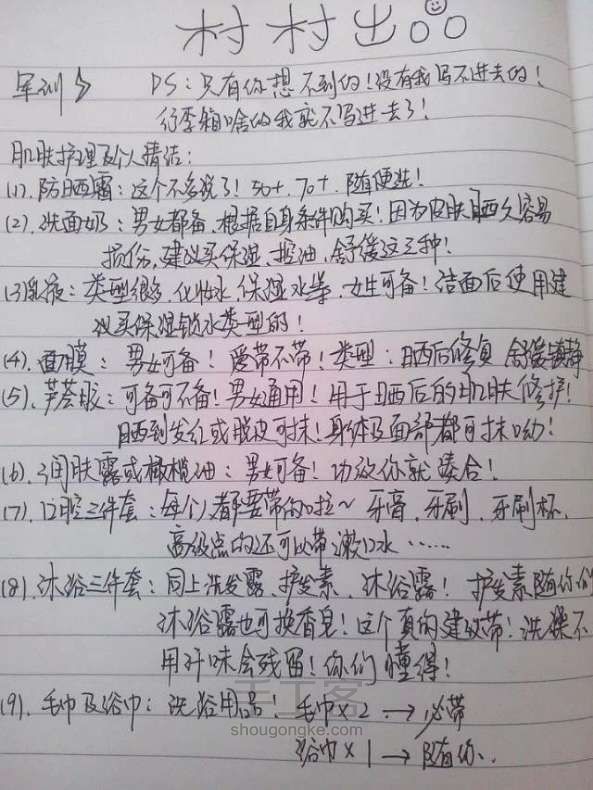 村村出品
军训 PS：只有你想不到的！没有我写不进去的！
行李箱啥的我就不写进去了！
肌肤护理及个人清洁：
(1).防晒霜：这个不多说了！50+.70+.随便选！
(2).洗面奶：男女都备.根据自身条件购买！因为皮肤晒久容易
损伤,建议买保湿.控油.舒缓这三种！
(3)乳液：类型很多,化妆水.保湿水等.女生可备！洁面后使用建
议买保湿锁水类型的！
(4).面膜：男女可备！爱带不带！类型：日晒后修复 舒缓镇静
(5).芦荟胶：可备可不备！男女通用！用于日晒后的肌肤修护！
晒到发红或脱皮可抹！身体及面部都可抹呦！
(6).润肤露或橄榄油：男女可备！功效你就凑合！
(7).口腔三件套：每个人都要带的啦~牙膏.牙刷.牙刷杯.
高级点的还可以带漱口水……
(8).沐浴三件套：同上洗发露.护发素.沐浴露！护发素随你们
沐浴露也可换香皂！这个真的建议带！洗澡不
用汗味会残留！你们懂得！
(9).毛巾及浴巾：洗浴用品！毛巾×2→必带
浴巾×1→随你.
手工客
shougongke.com